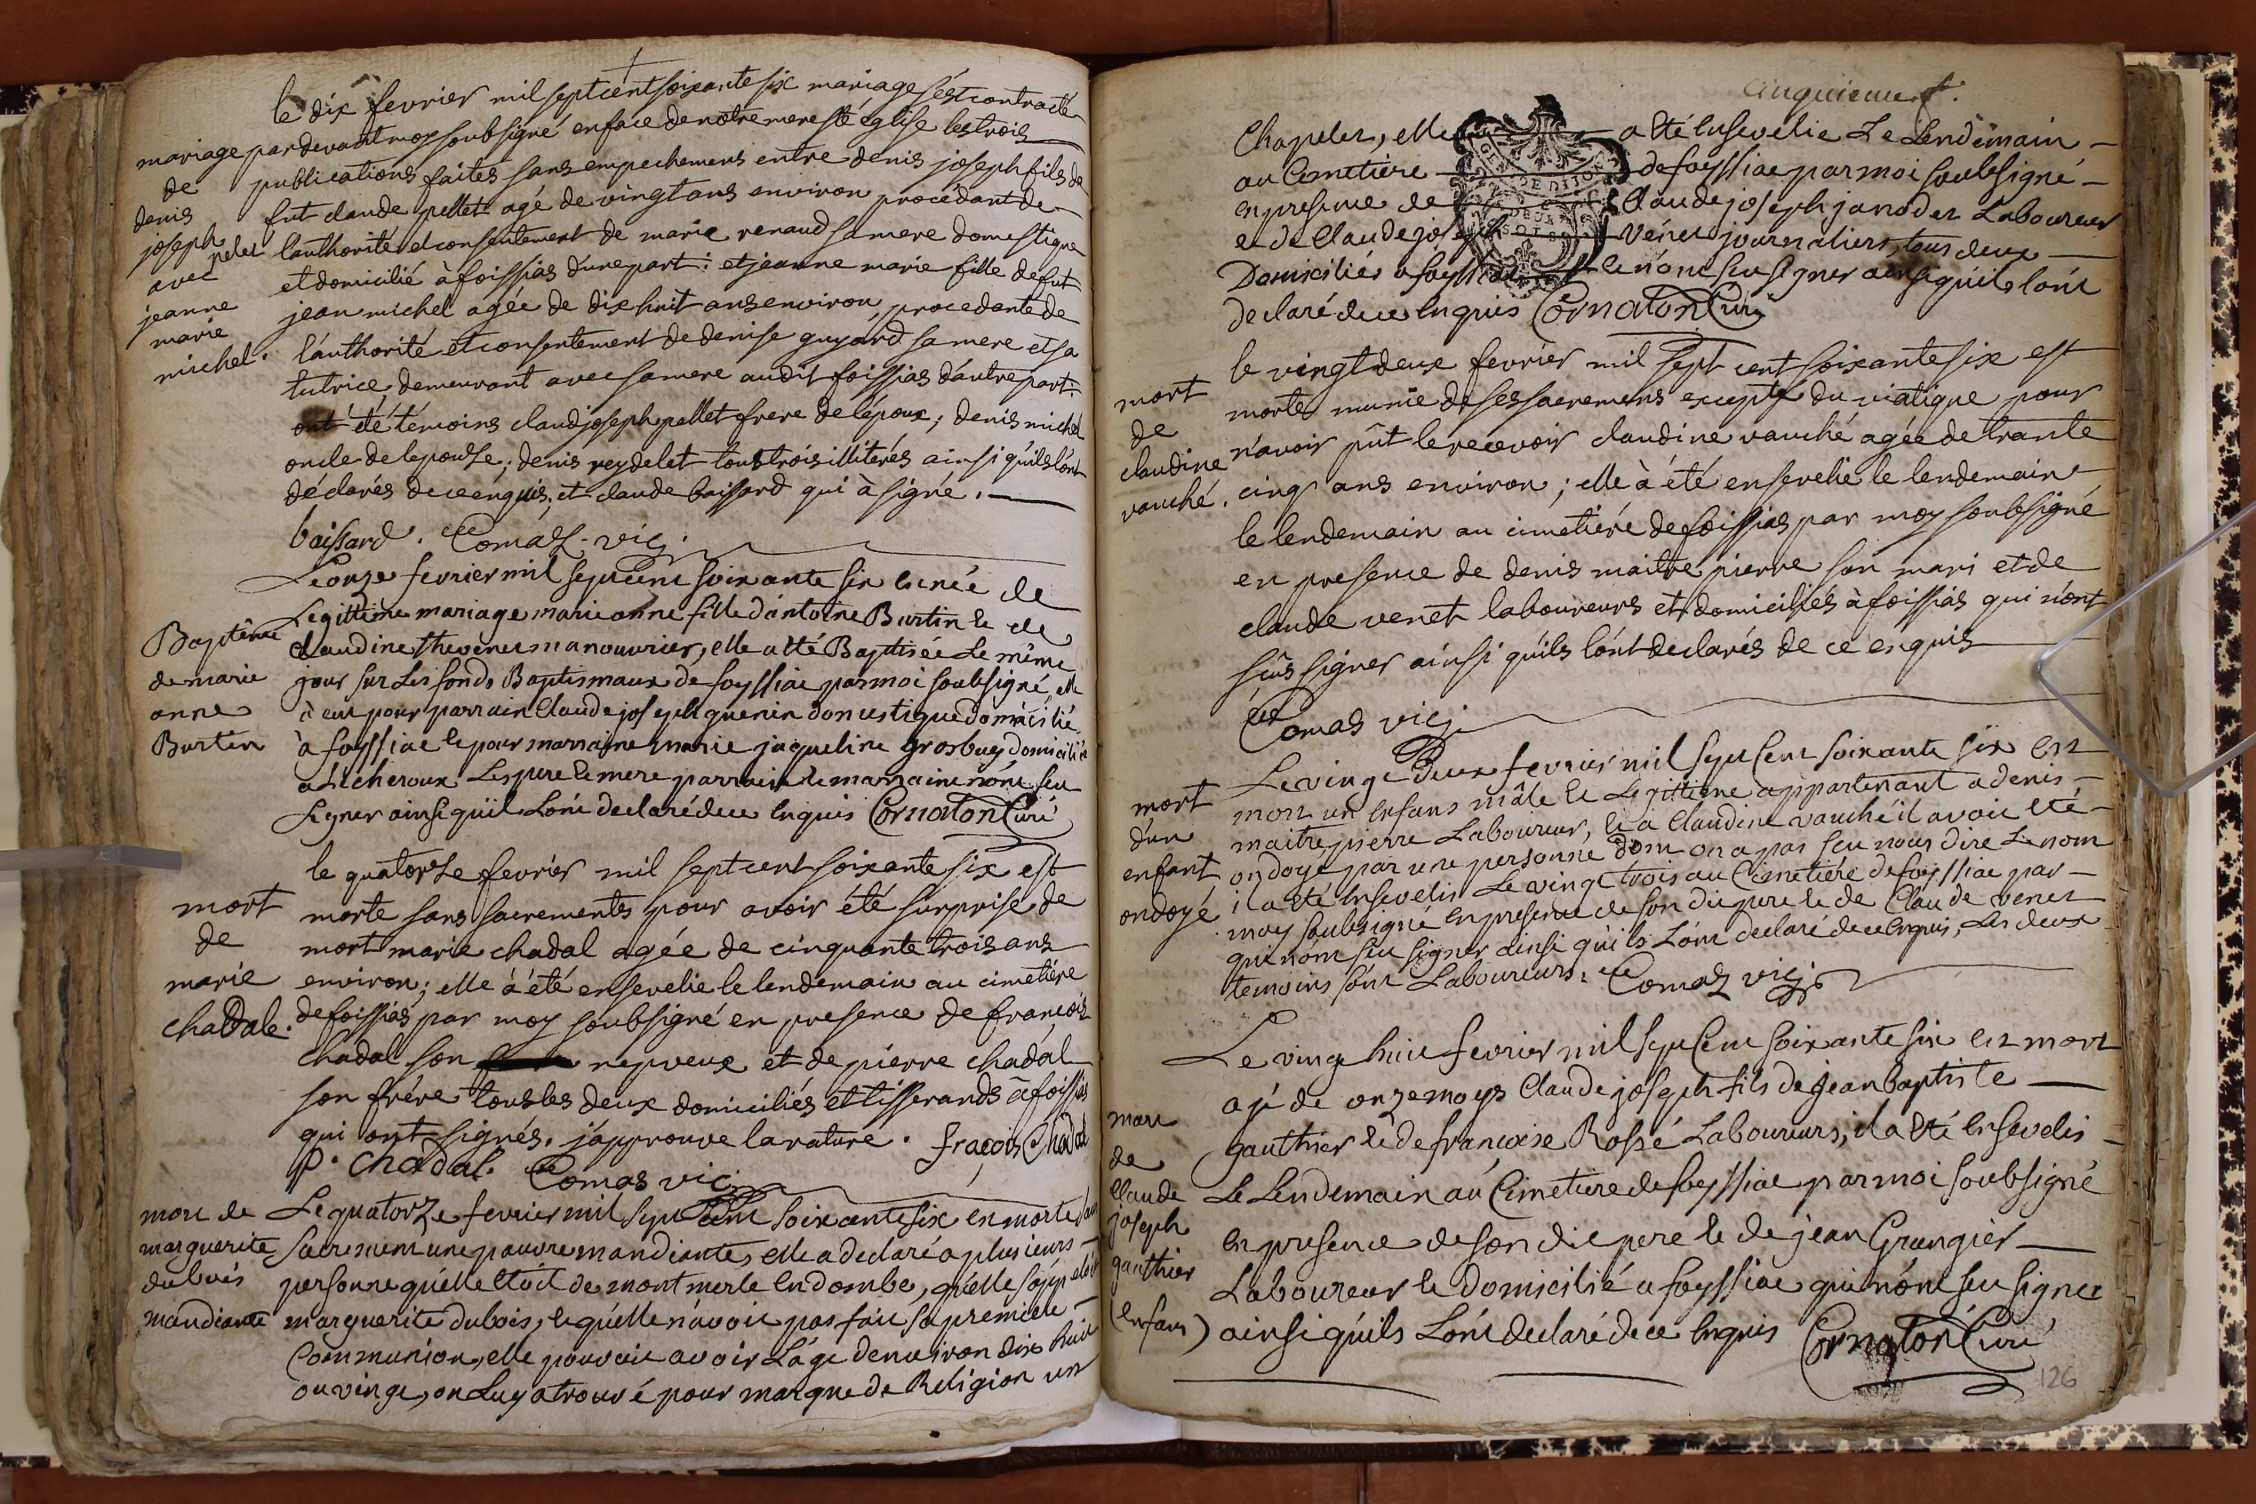 le dix fevrier mil sept cent soixante six mariage s'est contracté
mariage par devant moy soubsigné en face de notre mere ste église les trois
de publications faites sans empechemens entre denis joseph fils de
denis fut claude pellet agé de vingt ans environ procedant de
joseph pelet l'authorité et consentement de marie renaud sa mere domestique
avec et domicilié à foissias d'une part : et jeanne marie fille de fut
jeanne jean michel agée de dix huit ans environ, procedante de
marie l'authorité et consentement de denise guyard sa mere et sa
michel. tutrice demeurant avec sa mere audit foissias d'autre part :
ont été témoins claud joseph pellet frere de l'époux ; denis michel
oncle de l'epouse ; denis reydelet tous trois illiterés ainsi qu'ils l'ont
déclarés de ce enquis, et claude boissard qui à signé.
boissard. Comas. vic:
Le onze fevrier mil sept cent soixante six est née de
Legittime mariage marie anne fille d'antoine Burtin et de
Baptême claudine thevenet manouvrier, elle a été Baptisée Le même
de marie jour sur Les fonds Baptismaux de foyssiac par moi soubsigné, elle
anne à eut pour parrain Claude joseph guenin domestique domicilié
Burtin à foyssiac et pour marraine marie jaqueline grosbuy domiciliée
à Lécheroux Les pere et mere parrain et marraine n'ont seu
signer ainsi qu'il L'ont declaré de ce enquis Cornaton Curé
le quatorze fevrier mil sept cent soixante six est
mort morte sans sacrements pour avoir été surprise de
de mort marie chadal agée de cinquante trois ans
marie environ ; elle à été ensevelie le lendemain au cimetiére
chadale. de foissias par moy soubsigné en presence de françois
chadal son nepveux et de pierre chadal
son frére tous les deux domiciliés et tisserands à foissias
qui ont signés. j'approuve la rature. fraçois Chadal
p. chadal. Comas vic:
mort de Le quatorze fevrier mil sept cent soixante six est morte sans
marguerite sacrement une pauvre mandiante, elle a declaré a plusieurs
dubois personne qu'elle etoit de montmerle en dombe, qu'elle s'appeloit
mandiante marguerite dubois, et qu'elle n'avoit pas fait sa premiere
Communion, elle pouvoit avoir L'age d'environ dix huit
ou vingt, on Luy a trouvé pour marque de Religion un
cinquieme f.
Chapelet, elle a été Ensevelie Le Lendemain
au Cimetiere de foyssiac par moi soubsigné
en presence de Claude joseph janodet Laboureur
et de Claude joseph Vénet journaliers, tous deux
Domiciliés a foyssiac et n'ont seu signer ainsi qu'il l'ont
declaré de ce enquis Cornaton Curé
le vingt deux fevrier mil sept cent soixante six est
mort morte munie de ses sacremens excepté du viatique pour
de n'avoir pût le recevoir claudine vauché agée de trante
claudine cinq ans environ ; elle à été ensevelie le lendemain
vauché. le lendemain au cimetiére de foissias par moy soubsigné
en presence de denis maitre pierre son mari et de
claude venet laboureurs et domiciliés à foissias qui n'ont
sçus signer ainsi qu'ils l'ont declarés de ce enquis
Comas vic:
Le vingt Deux fevrier mil sept Cent soixante six est
mort mort un enfans mâle et Legittime appartenant a denis
d'un maitrepierre Laboureur, et a Claudine vauché il avoit été
enfant ondoyé par une personne dont on a pas seu nous dire Le nom
ondoyé il a été Ensevelis Le vingt trois au Cimetiére de foyssiac par
moy soubsigné en presence de son dit pere et de Claude venet
qui n'ont seu signer ainsi qu'ils L'ont declaré de ce enquis, Les deux
temoins sont Laboureurs. Comas vic:
Le vingt huit fevrier mil sept Cent soixante six est mort
agé de onze moys Claude joseph fils de jean baptiste
mort gauthier et de francoise Rossé Laboureurs, il a été Ensevelis
de Le Lendemain au Cimetiere de foyssiac par moi soubsigné
Claude
joseph en presence de son dit pere et de jean Grangier
gauthier Laboureur et domicilié a foyssiac qui n'ont seu signer
(enfans) ainsi qu'ils L'ont declaré de ce enquis Cornaton Curé
126